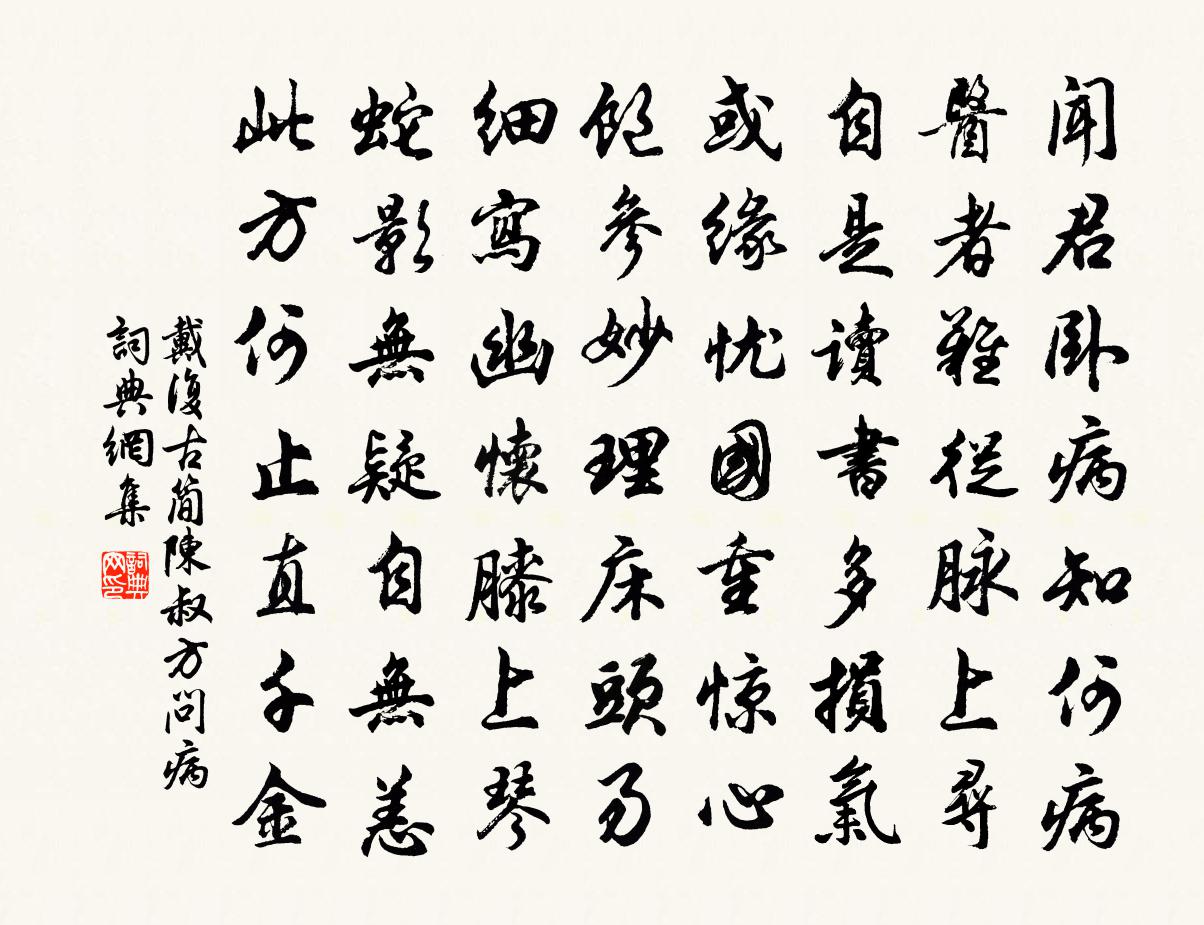 聞君卧病知何病
醫者難從脉上尋
自是讀書多損氣
或緣忧國重惊心
飽參妙理床頭易
細寫幽懷膝上琴
蛇影無疑自無恙
此方何止直千金
戴復古簡陳叔方問病
詞典網集
詞典网印